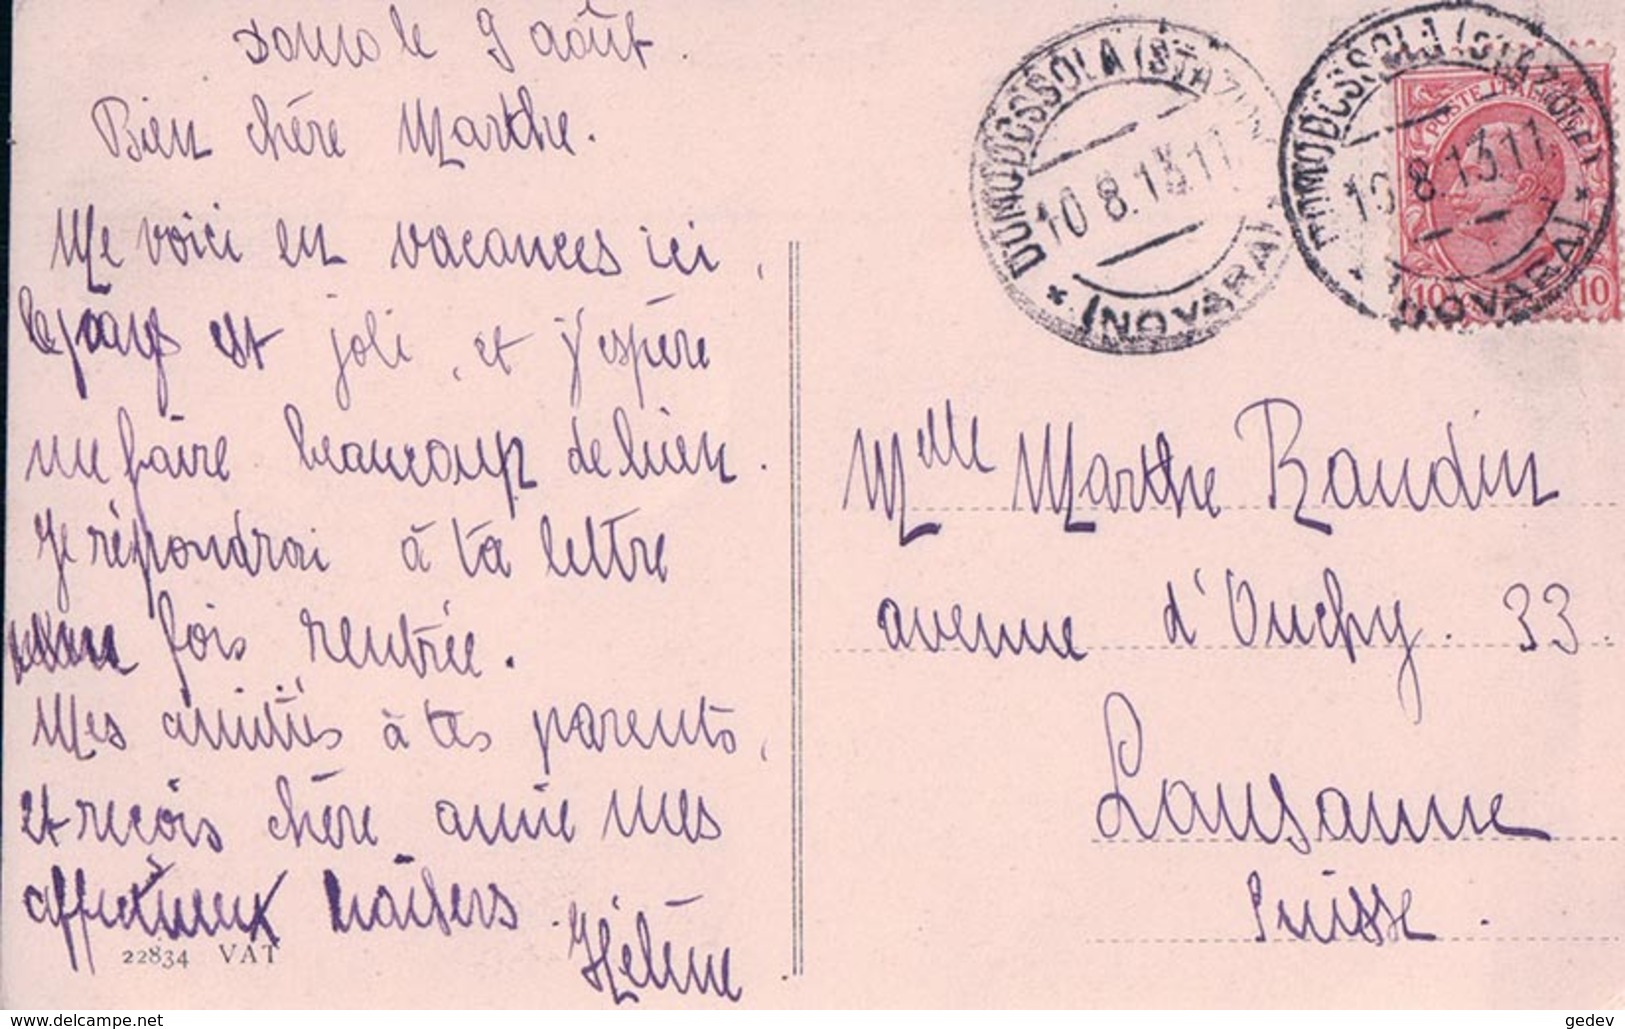 Domo le 9 août.
Bien chère Marthe.
Me voici en vacances ici,
le pays est joli, et j'espère
me faire beaucoup de bien.
Je répondrai à ta lettre
une fois rentrée.
Mes amitiés à tes parents,
et reçois chère amie mes
affectueux baisers.
Hélène
22834 VAT
DOMODOSSOLA (STAZIONE)
10.8.13.11
* (NOVARA) *
DOMODOSSOLA (STAZIONE)
10.8.13.11
* (NOVARA) *
POSTE ITALIANE
10 10
Melle Marthe Raudin
avenue d'Ouchy. 33.
Lausanne
Suisse.
www.delcampe.net
gedev